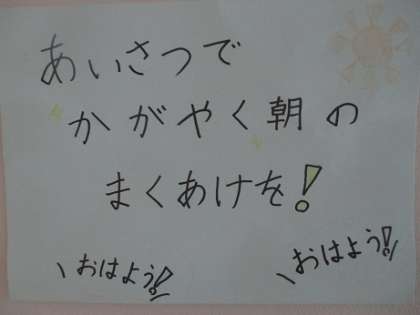 あいさつで
かがやく朝の
まくあけを!
\おはよう!/
\おはよう!/